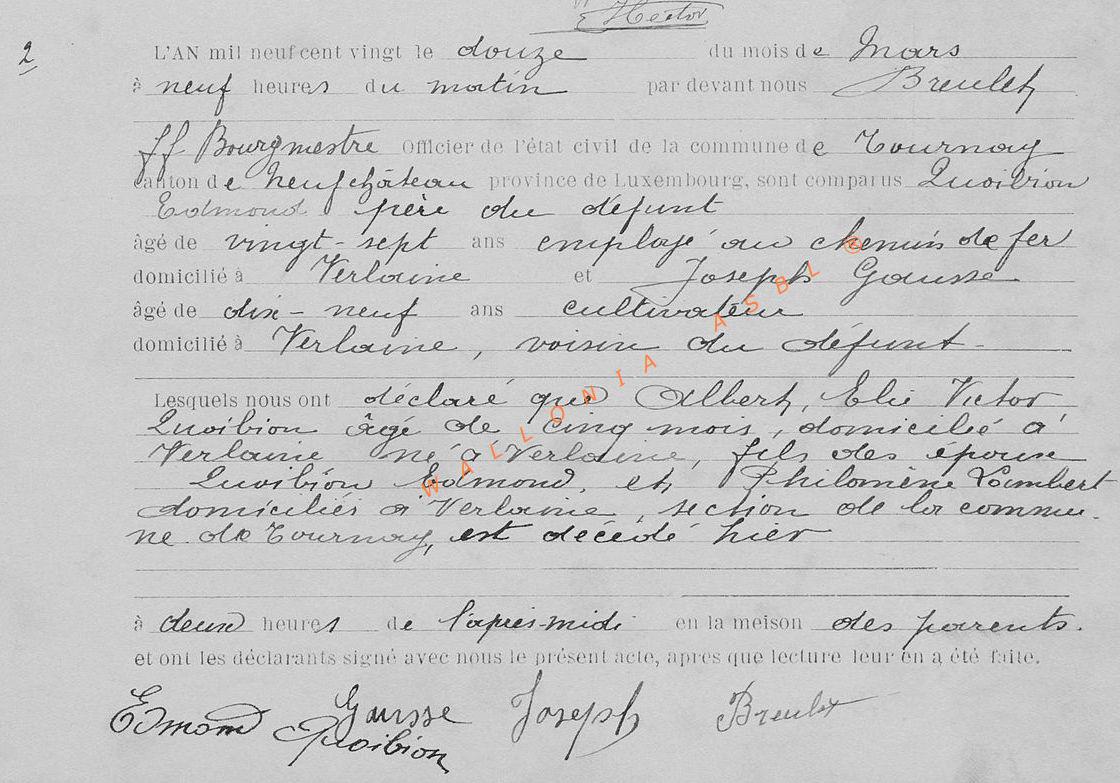 Hector
2
L'AN mil neuf cent vingt le douze du mois de Mars
à neuf heures du matin par devant nous Breulet
ff Bourgmestre Officier de l'état civil de la commune de Tournay
canton de Neufchâteau province de Luxembourg, sont comparus Quoibion
Edmond père du défunt
âgé de vingt-sept ans employé au chemin de fer
domicilié à Verlaine et Joseph Gausse
âgé de dix-neuf ans cultivateur
domicilié à Verlaine, voisin du défunt-
Lesquels nous ont déclaré que Albert, Elie Victor
Quoibion âgé de cinq mois, domicilié à
Verlaine né à Verlaine, fils des époux
Quoibion Edmond, et Philomène Lambert
domiciliés à Verlaine, section de la commu-
ne de Tournay, est décédé hier
à deux heures de l'après-midi en la meison des parents.
et ont les déclarants signé avec nous le présent acte, après que lecture leur en a été faite.
Edmond Quoibion Gausse Joseph Breulet
WALLONIA ASBL ©